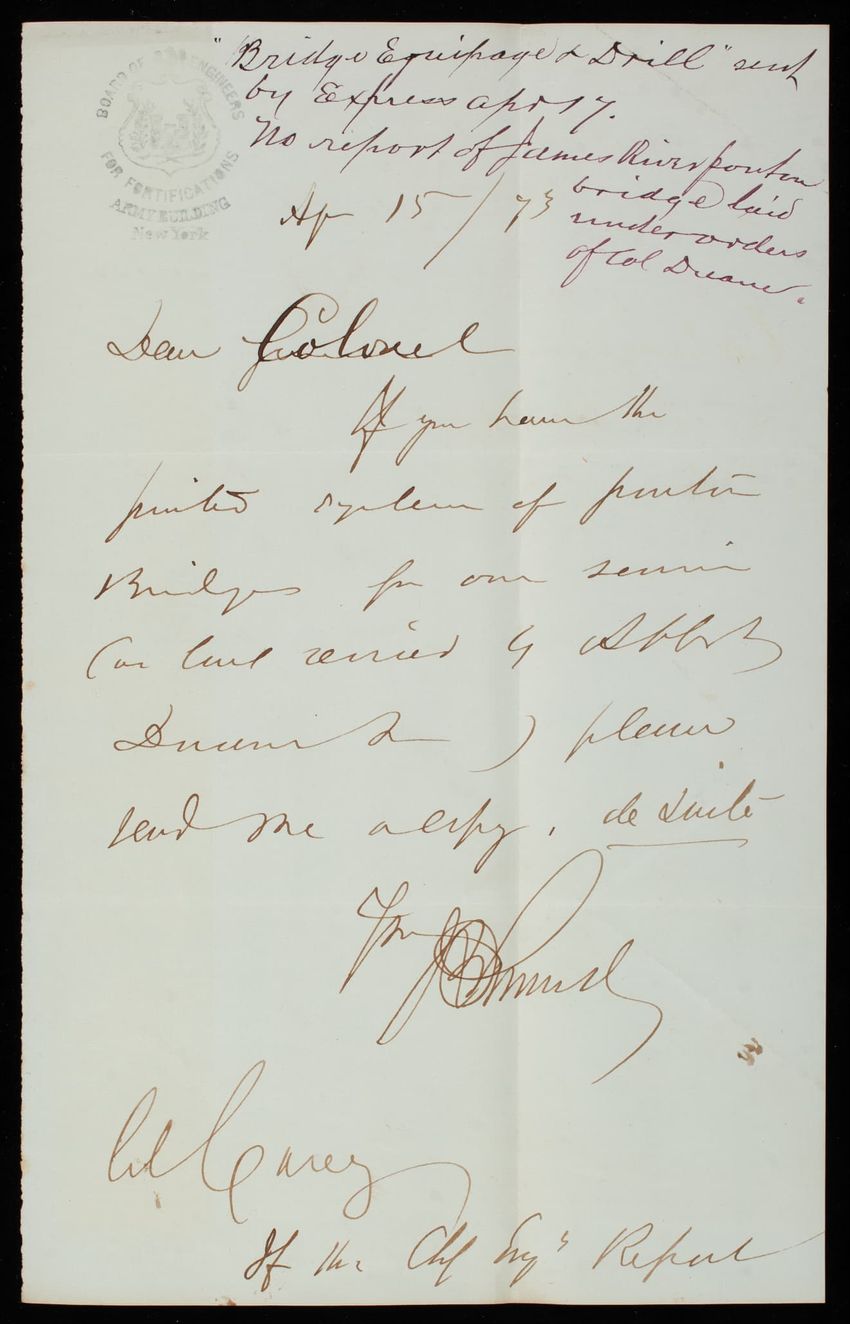 BOARD OF ENGINEERS
FOR FORTIFICATIONS
ARMY BUILDING
New York
"Bridge Equipage & Drill" sent
by Express Apr 17.
No report of James River ponton
bridge laid
under orders
of Col Duane.
Ap 15/73
Dear Colonel
If you have the
printed system of ponton
Bridges for our service
(on revised by Abbot,
Duane &) please
send me a copy, de suite
Col Casey
If the Chf Engrs Report